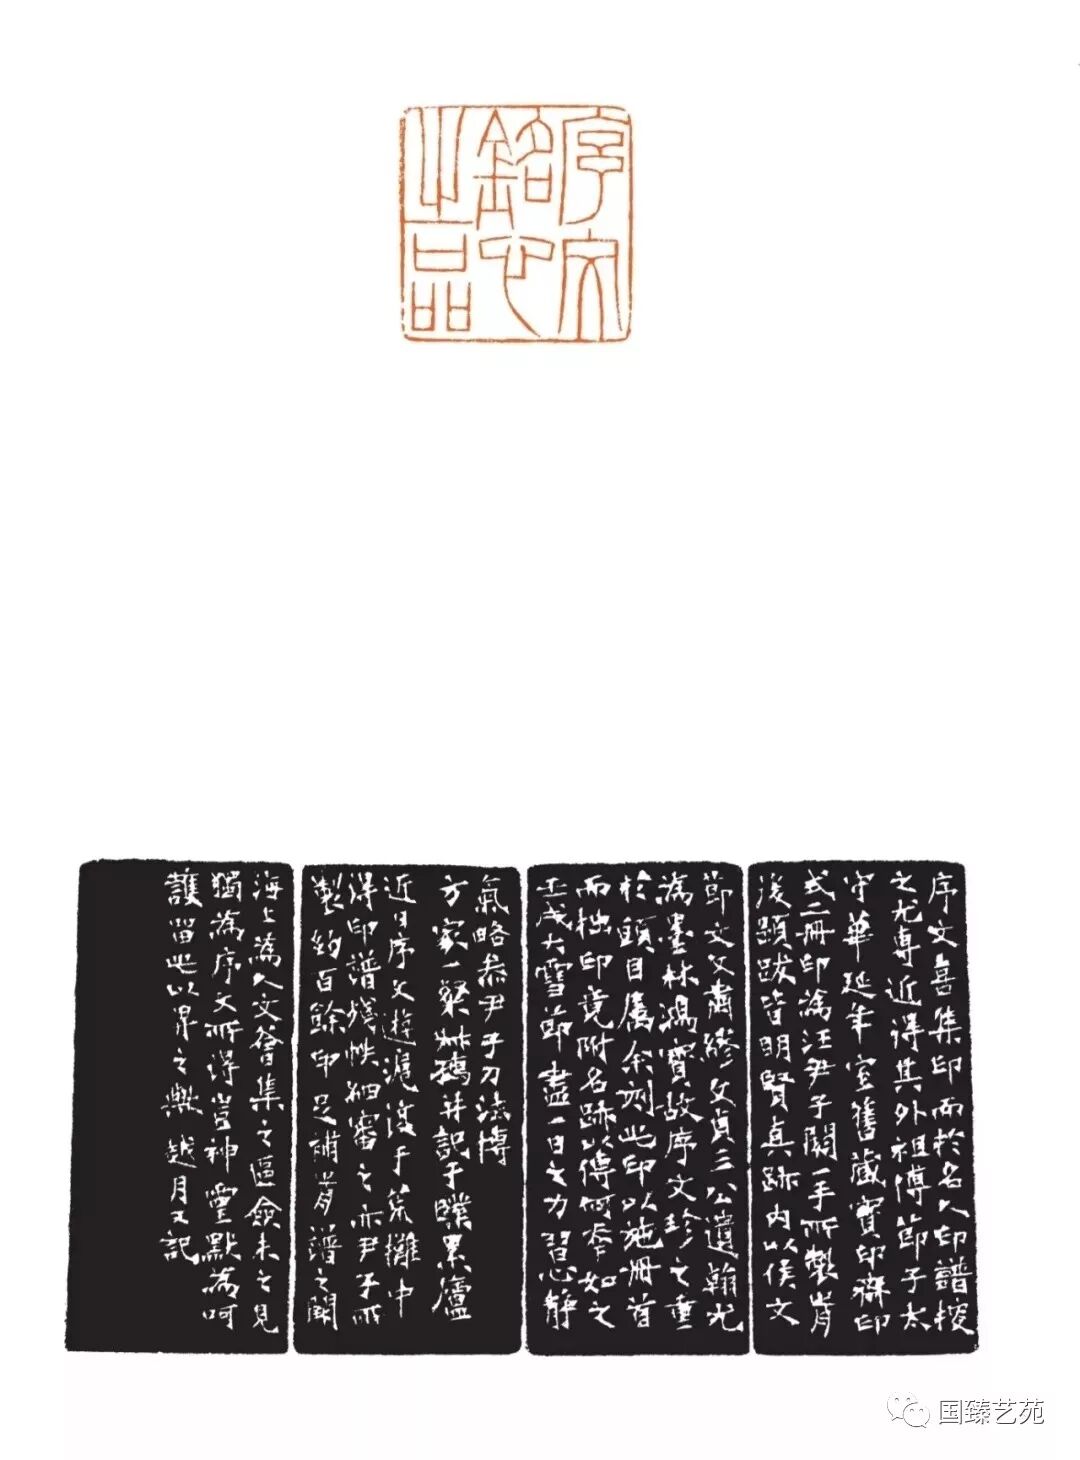 序文
銘心
之品
序文喜集印而於名人印譜搜
之尤專近得其外祖傅節子太
守華延年室舊藏寶印齋印
式二冊印為汪尹子關一手所製前
後題跋皆明賢真跡內以侯文
節文文肅繆文貞三公遺翰尤
為墨林鴻寶故序文珍之重
於頭目屬余刻此印以施冊首
而拙印竟附名跡以傳何幸如之
壬戌大雪節盡一日之力習心靜
氣略恭尹子刀法博
方家一粲 并記于 累廬
近日序文遊滬瀆于荒攤中
得印譜殘帙細審之亦尹子所
製約百餘印足補前譜之闕
海上為人文薈集之區僉未之見
獨為序文所得豈神靈默為呵
護留此以畀之歟越月又記
国臻艺苑